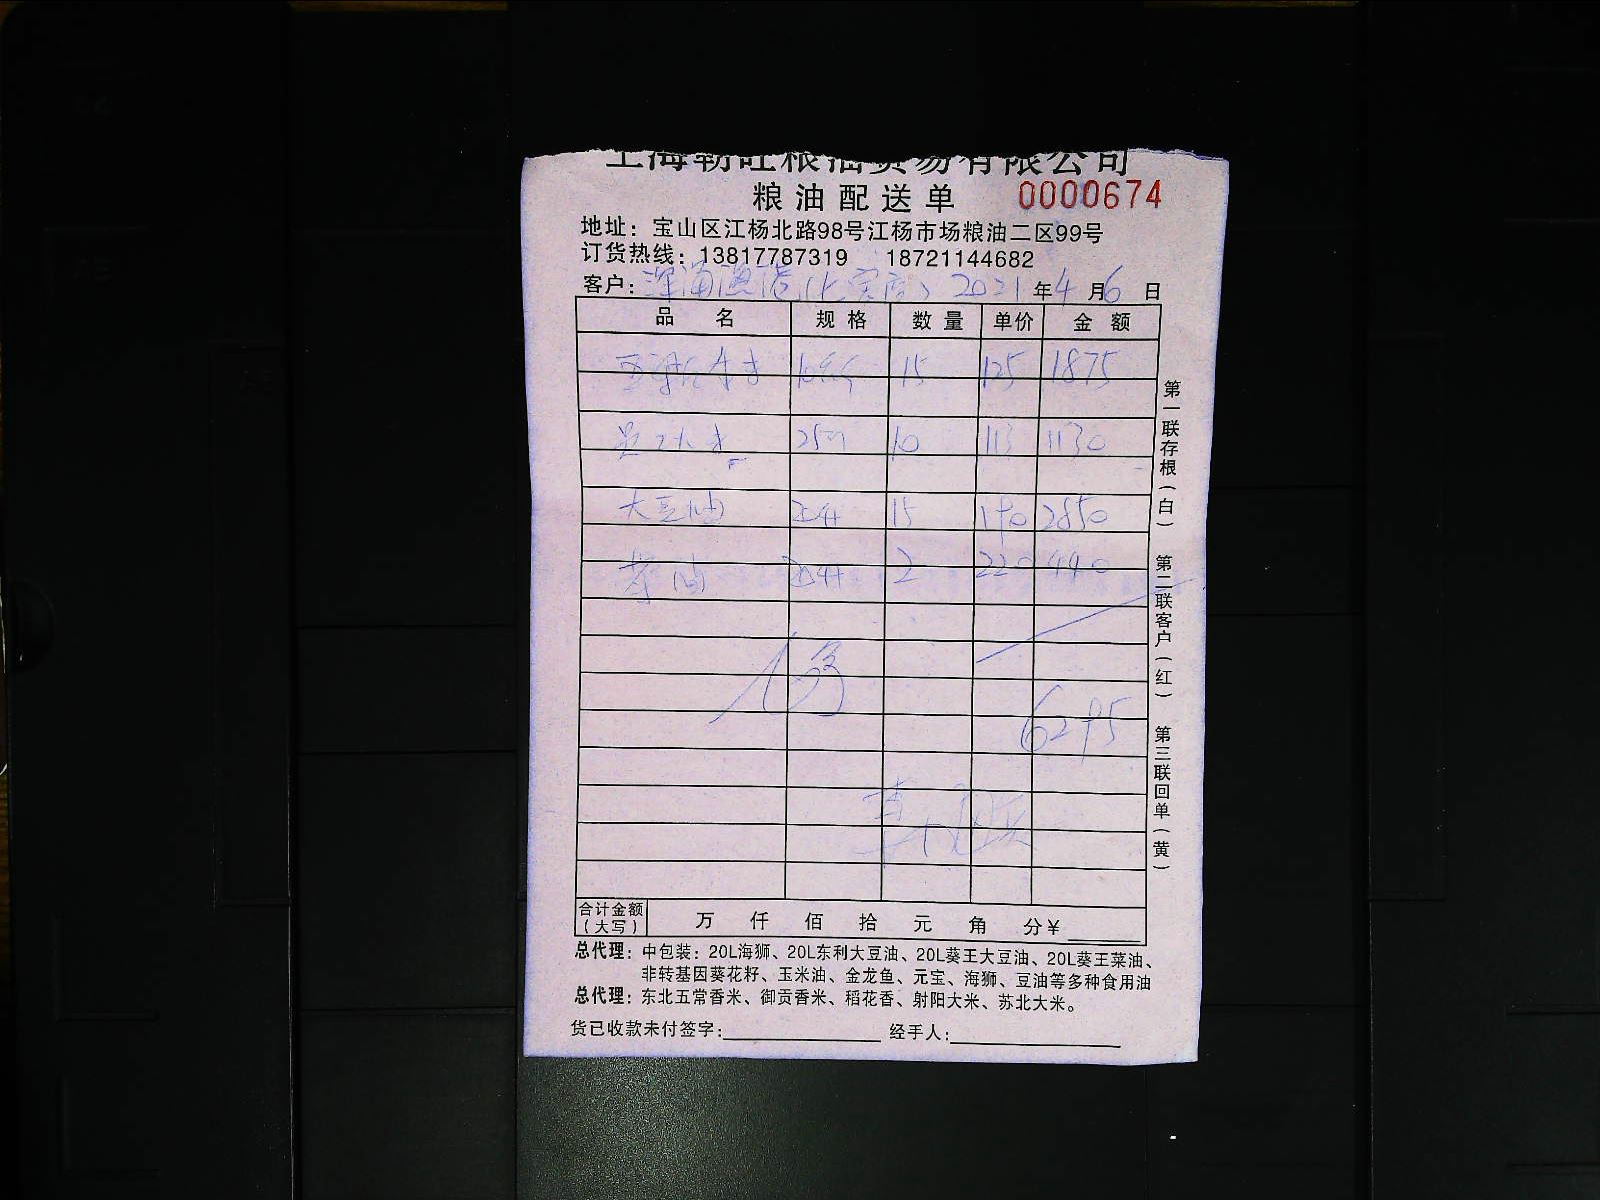 上海朝旺粮油贸易有限公司
粮油配送单 0000674
地址：宝山区江杨北路98号江杨市场粮油二区99号
订货热线：13817787319 18721144682
客户： 2021年4月6日
品名 规格 数量 单价 金额
15 125 1875
25 10 113 1130
大豆油 15 190 2850
油 2 220 440
6295
合计金额（大写） 万 仟 佰 拾 元 角 分￥
总代理：中包装：20L海狮、20L东利大豆油、20L葵王大豆油、20L葵王菜油、
非转基因葵花籽、玉米油、金龙鱼、元宝、海狮、豆油等多种食用油
总代理：东北五常香米、御贡香米、稻花香、射阳大米、苏北大米。
货已收款未付签字： 经手人：
第一联存根（白） 第二联客户（红） 第三联回单（黄）